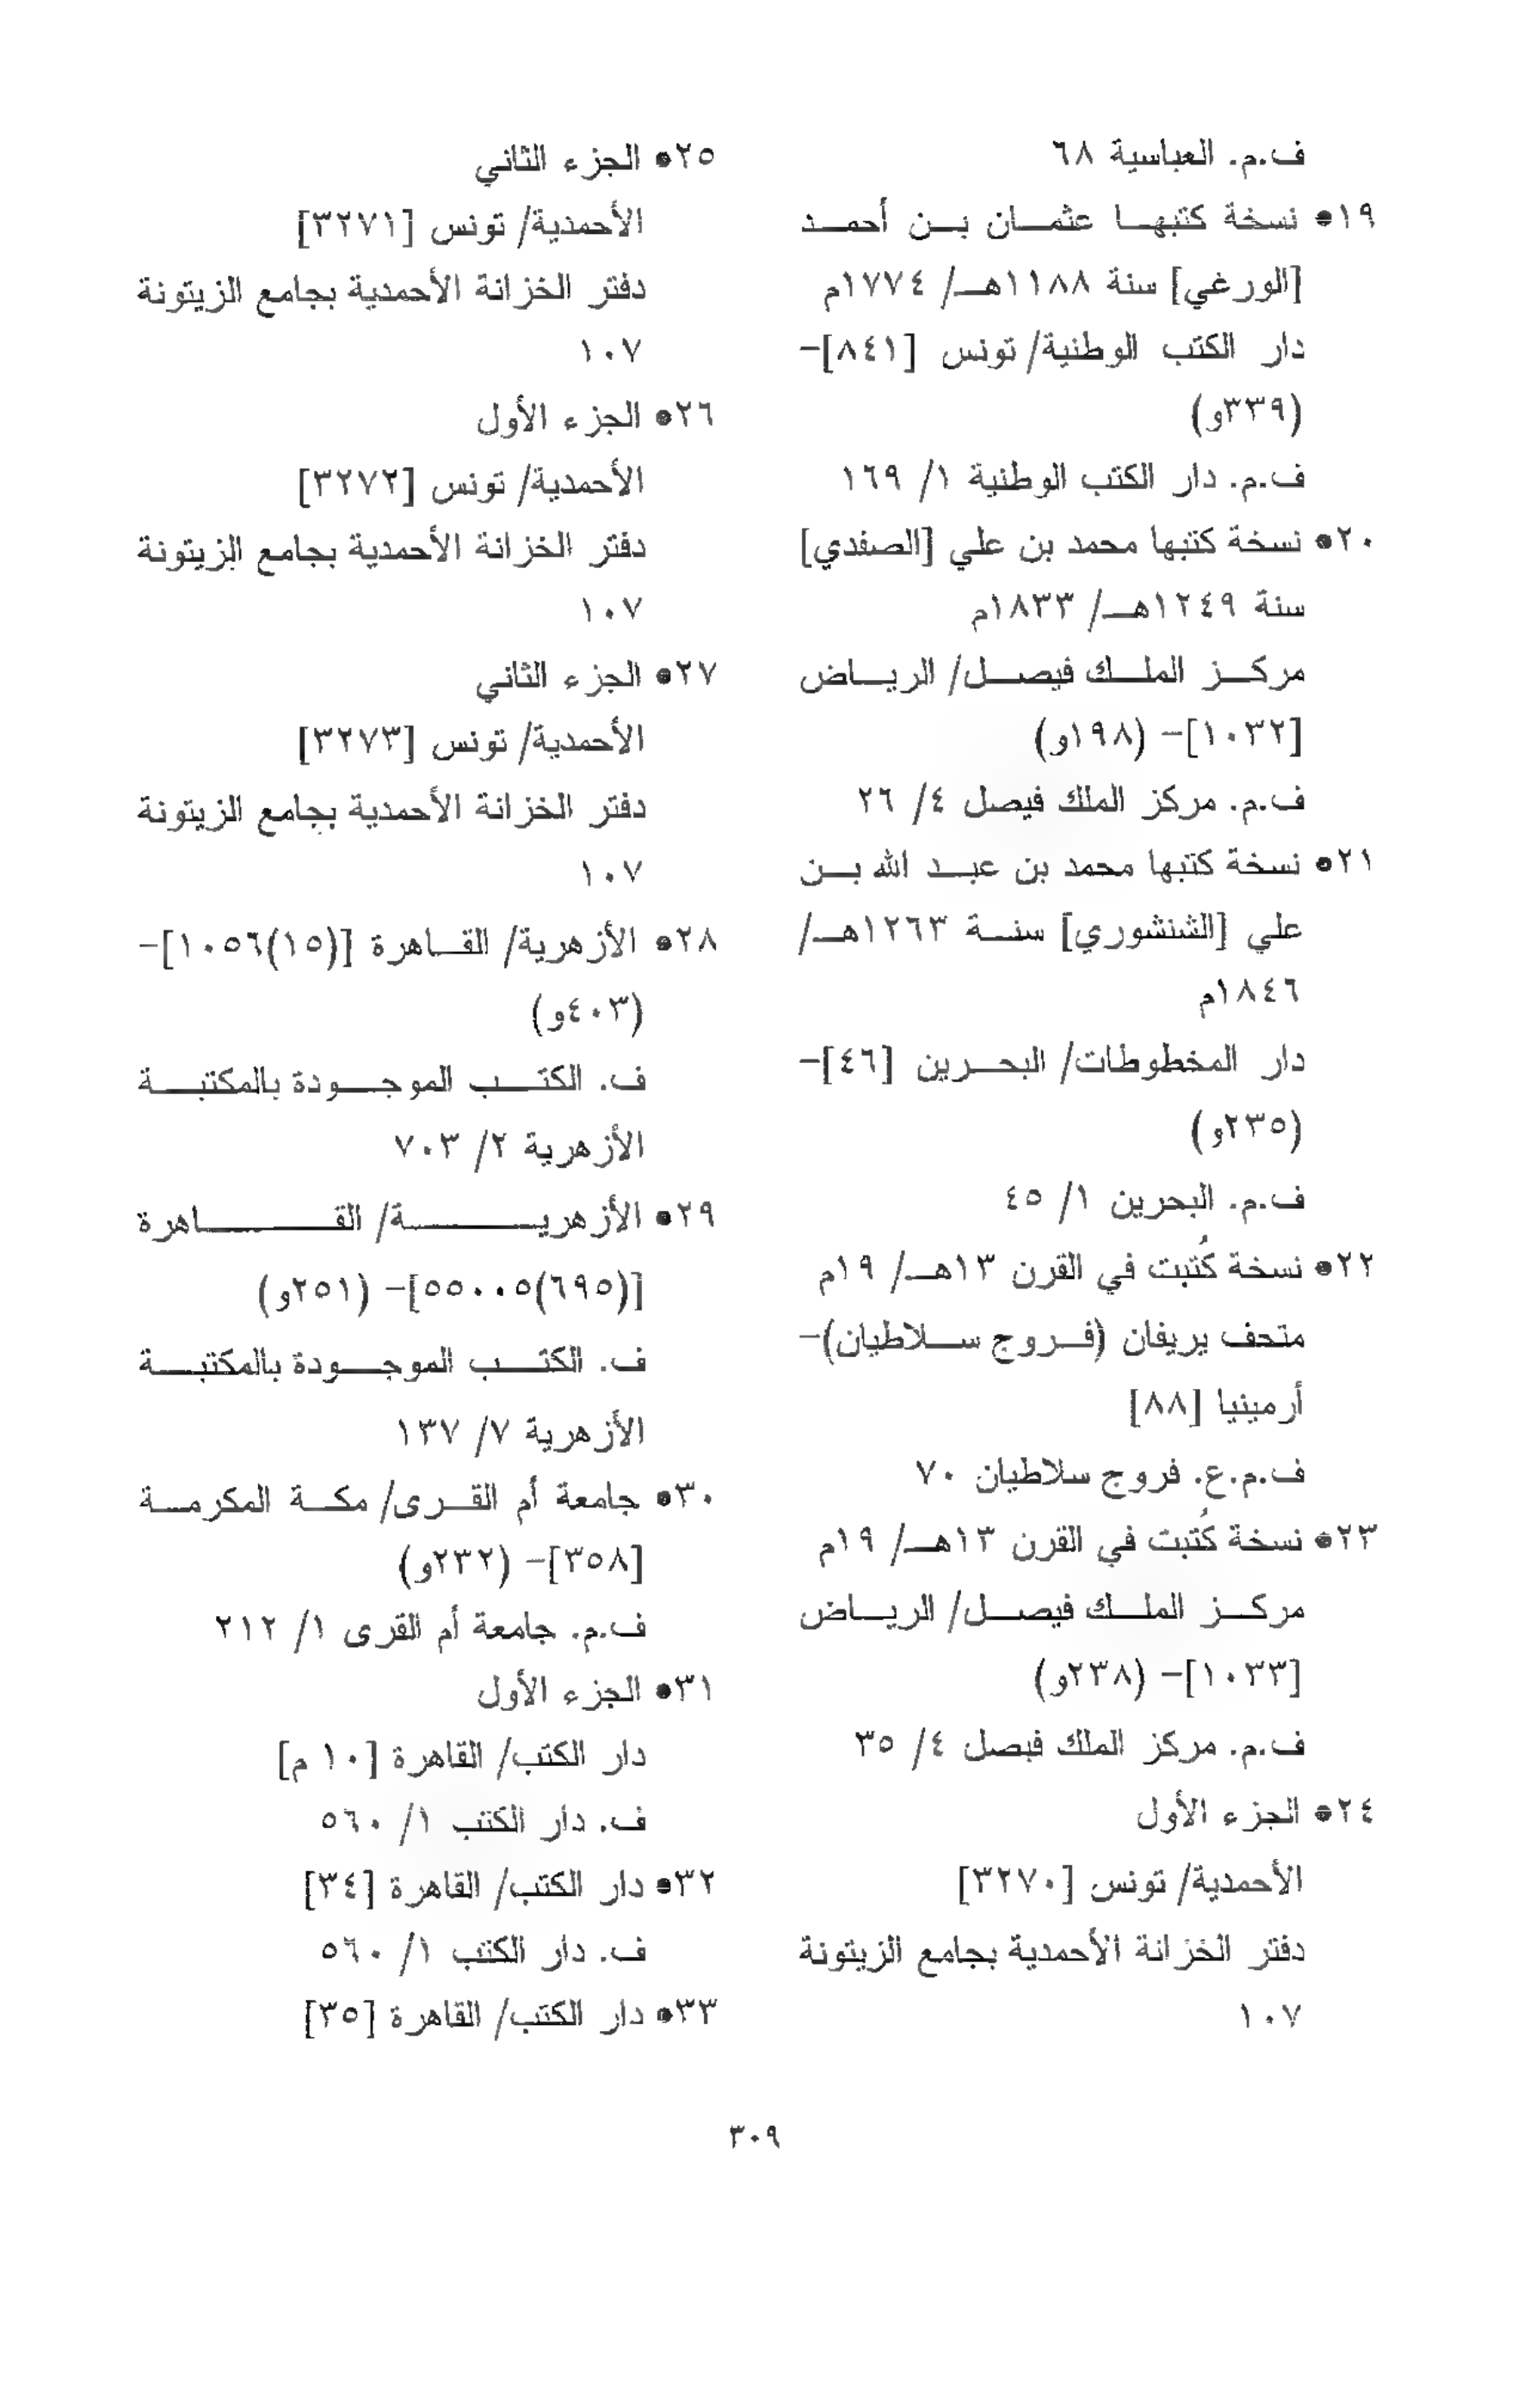 ف.م. العباسية ٦٨
١٩• نسخة كتبها عثمان بن أحمد
[الورغي] سنة ١١٨٨هـ/ ١٧٧٤م
دار الكتب الوطنية/ تونس [٨٤١]-
(٣٣٩و)
ف.م. دار الكتب الوطنية ١/ ١٦٩
٢٠• نسخة كتبها محمد بن علي [الصفدي]
سنة ١٢٤٩هـ/ ١٨٣٣م
مركز الملك فيصل/ الرياض
[١٠٣٢]- (١٩٨و)
ف.م. مركز الملك فيصل ٤/ ٢٦
٢١• نسخة كتبها محمد بن عبد الله بن
علي [الشنشوري] سنة ١٢٦٣هـ/
١٨٤٦م
دار المخطوطات/ البحرين [٤٦]-
(٢٣٥و)
ف.م. البحرين ١/ ٤٥
٢٢• نسخة كُتبت في القرن ١٣هـ/ ١٩م
متحف يريفان (فروج سلاطيان)-
أرمينيا [٨٨]
ف.م.ع. فروج سلاطيان ٧٠
٢٣• نسخة كُتبت في القرن ١٣هـ/ ١٩م
مركز الملك فيصل/ الرياض
[١٠٣٣]- (٢٣٨و)
ف.م. مركز الملك فيصل ٤/ ٣٥
٢٤• الجزء الأول
الأحمدية/ تونس [٣٢٧٠]
دفتر الخزانة الأحمدية بجامع الزيتونة
١٠٧
٢٥• الجزء الثاني
الأحمدية/ تونس [٣٢٧١]
دفتر الخزانة الأحمدية بجامع الزيتونة
١٠٧
٢٦• الجزء الأول
الأحمدية/ تونس [٣٢٧٢]
دفتر الخزانة الأحمدية بجامع الزيتونة
١٠٧
٢٧• الجزء الثاني
الأحمدية/ تونس [٣٢٧٣]
دفتر الخزانة الأحمدية بجامع الزيتونة
١٠٧
٢٨• الأزهرية/ القاهرة [(١٥)١٠٥٦]-
(٤٠٣و)
ف. الكتب الموجودة بالمكتبة
الأزهرية ٢/ ٧٠٣
٢٩• الأزهرية/ القاهرة
[(٦٩٥)٥٥٠٠٥]- (٢٥١و)
ف. الكتب الموجودة بالمكتبة
الأزهرية ٧/ ١٣٧
٣٠• جامعة أم القرى/ مكة المكرمة
[٣٥٨]- (٢٣٢و)
ف.م. جامعة أم القرى ١/ ٢١٢
٣١• الجزء الأول
دار الكتب/ القاهرة [١٠ م]
ف. دار الكتب ١/ ٥٦٠
٣٢• دار الكتب/ القاهرة [٣٤]
ف. دار الكتب ١/ ٥٦٠
٣٣• دار الكتب/ القاهرة [٣٥]
٣٠٩